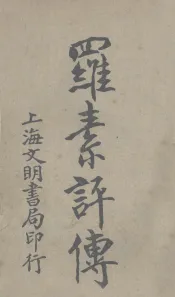 羅素評傳
上海文明書局印行